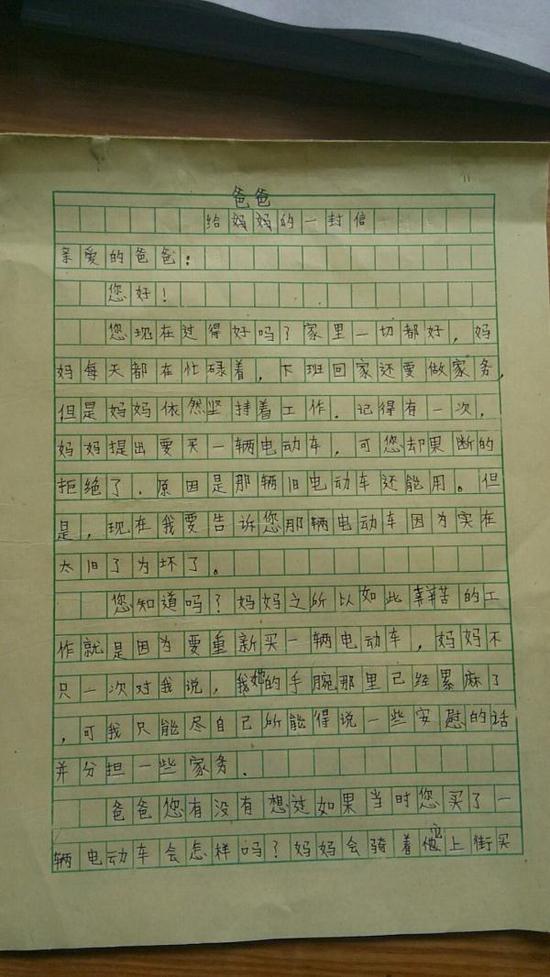 爸爸
给妈妈的一封信
亲爱的爸爸：
您好！
您现在过得好吗？家里一切都好，妈
妈每天都在忙碌着，下班回家还要做家务，
但是妈妈依然坚持着工作．记得有一次，
妈妈提出要买一辆电动车，可您却果断的
拒绝了．原因是那辆旧电动车还能用。但
是，现在我要告诉您那辆电动车因为实在
太旧了为坏了。
您知道吗？妈妈之所以如此辛苦的工
作就是因为要重新买一辆电动车，妈妈不
只一次对我说，我她的手腕那里已经累麻了
，可我只能尽自己所能得说一些安慰的话
并分担一些家务．
爸爸您有没有想过如果当时您买了一
辆电动车会怎样吗？妈妈会骑着它上街买